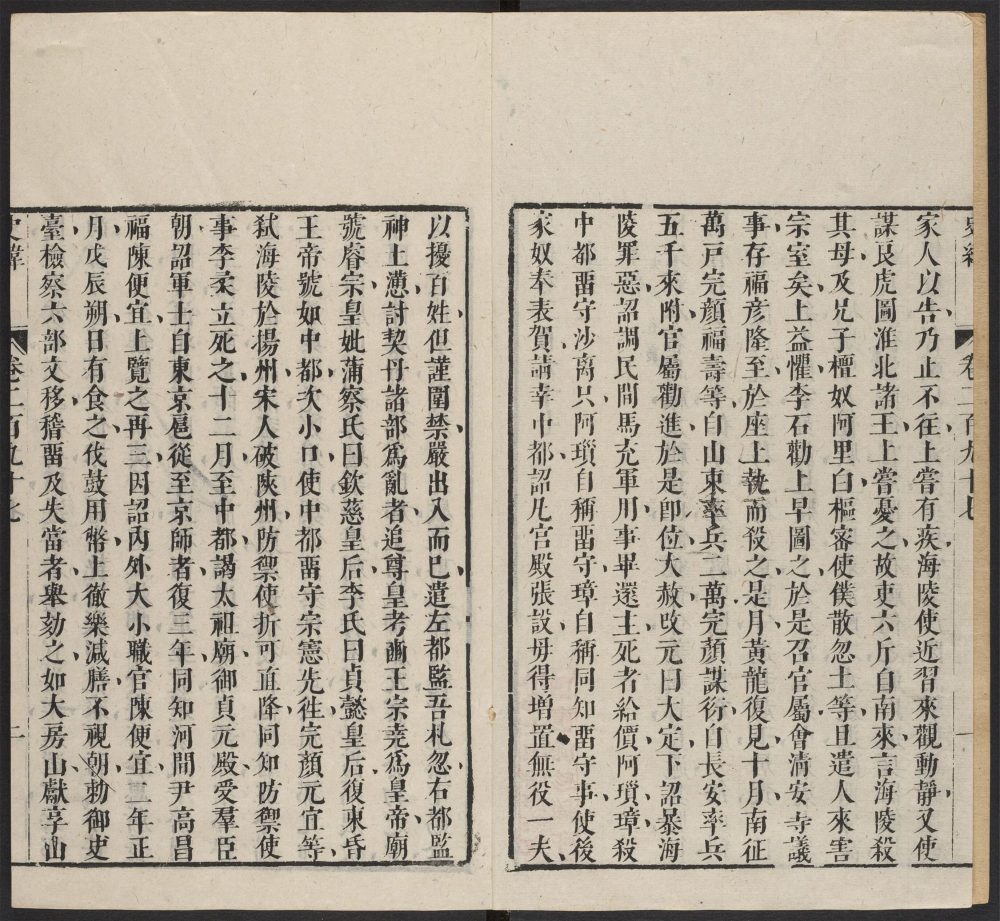 史緯
卷二百九十七
一
家人以告乃止不往上嘗有疾海陵使近習來觀動靜又使
謀良虎圖淮北諸王上嘗憂之故吏六斤自南來言海陵殺
其母及兄子檀奴阿里白樞密使僕散忽土等且遣人來害
宗室矣上益懼李石勸上早圖之於是召官屬會清安寺議
事存福彦隆至於座上執而殺之是月黃龍復見十月南征
萬戸完顏福壽等自山東率兵二萬完顏謀衍自長安率兵
五千來附官屬勸進於是卽位大赦改元曰大定下詔暴海
陵罪惡詔調民間馬充軍用事畢還主死者給價阿瑣璋殺
中都畱守沙离只阿瑣自稱畱守璋自稱同知畱守事使後
家奴奉表賀請幸中都詔凡宮殿張設毋得增置無役一夫
以擾百姓但謹圍禁嚴出入而已遣左都監吾札忽右都監
神土懣討契丹諸部爲亂者追尊皇考豳王宗堯爲皇帝廟
號睿宗皇妣蒲察氏曰欽慈皇后李氏曰貞懿皇后復東昏
王帝號如中都次小口使中都畱守宗憲先往完顏元宜等
弑海陵於揚州宋人破陝州防禦使折可直降同知防禦使
事李柔立死之十二月至中都謁太祖廟御貞元殿受羣臣
朝詔軍士自東京扈從至京師者復三年同知河間尹高昌
福陳便宜上覽之再三因詔內外大小職官陳便宜二年正
月戊辰朔日有食之伐鼓用幣上徹樂減膳不視朝勅御史
臺檢察六部文移稽畱及失當者舉劾之如大房山獻享山
史緯
卷二百九十七
二